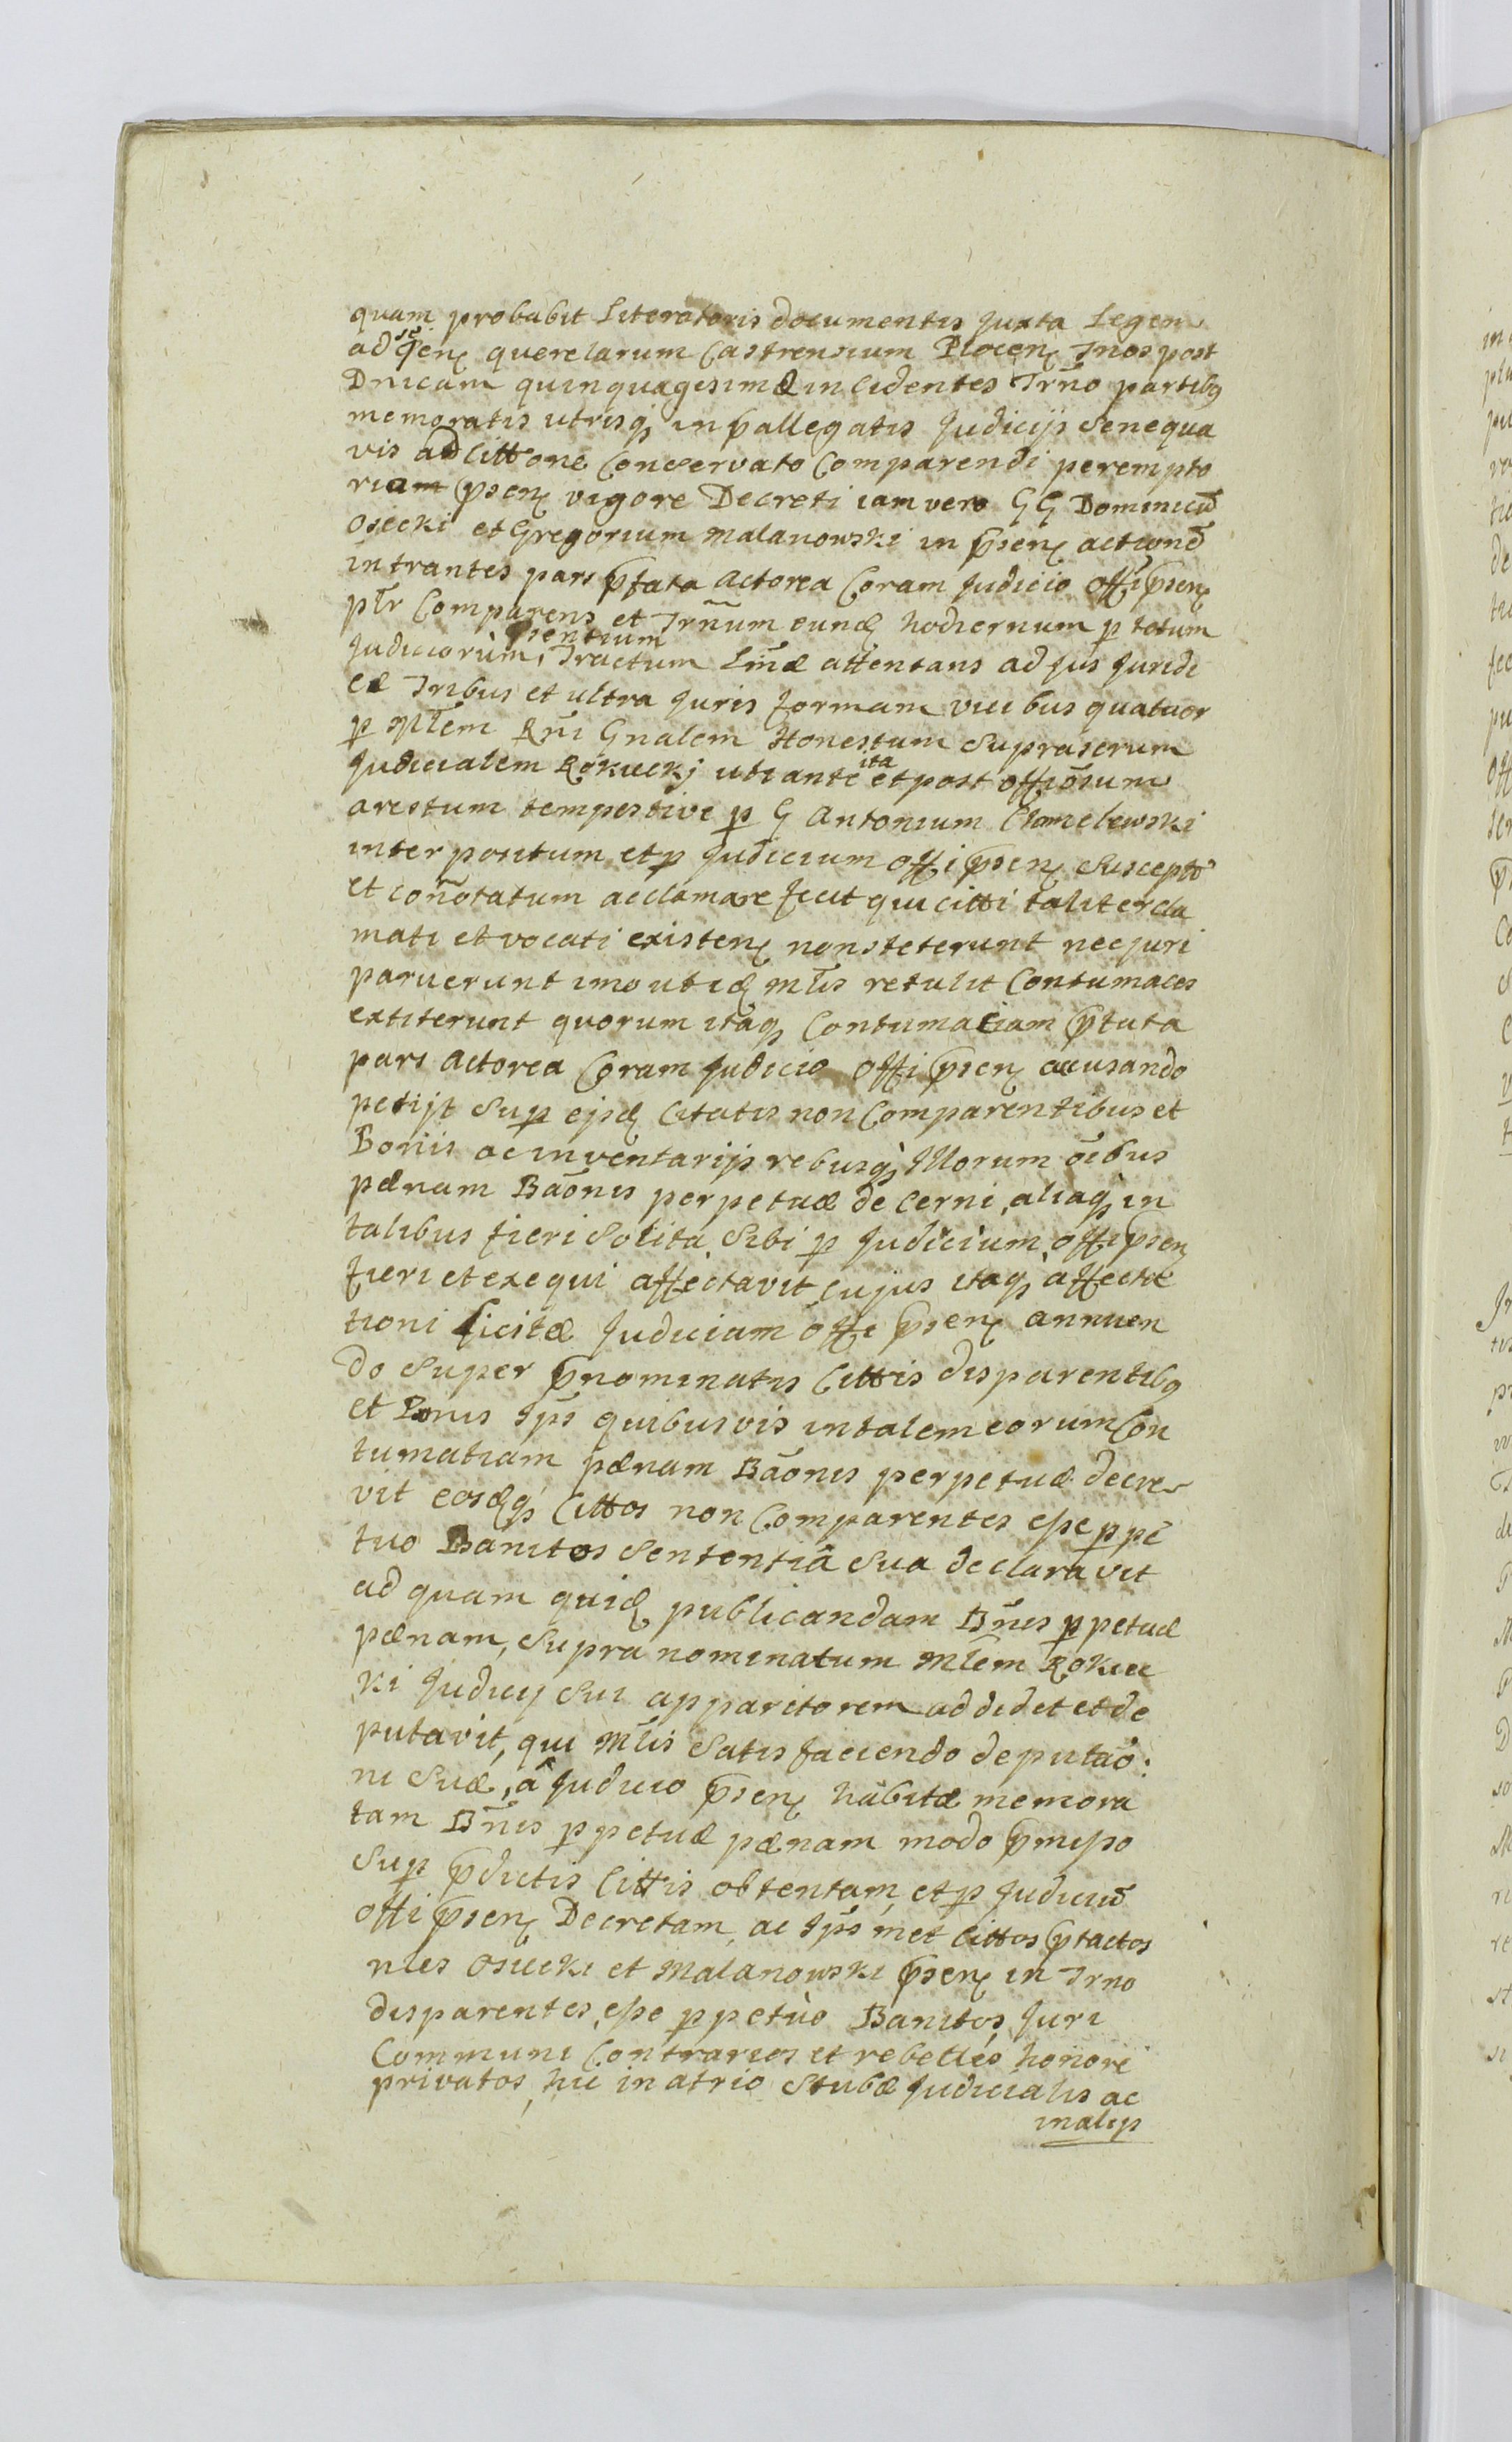 quam probabit Literatoris documentis juxta Legem
ad seqeñ querelarum Castrensium Plocen Tnos post
Dnicam quinquagesimæ incidentes Trño partibꝫ
memoratis utrisqꝫ in pallegatis Judicijs Sene qua
vis adcittone Conservato Comparendi perempto
riam psen vigore Decreti iam vero GG Dominicū
Osiecki et Gregorium Malanowski in psen actionē
intrantes pars pfata Actorea Coram Judicio Offi psen
plr Comparens et Trñum eund hodiernum p totum
Judiciorùm psentium Tractum Lmæ attentans ad jus Juridi
cæ Tribus et ultra Juris formam vicibus quatuor
p Mlem Rñi Gnalem Honestum Suprascrum
Judicialem Rokucki uti ante ita et post offiosum
arestum tempestive p G Antonium Chmelewski
interpositum et p Judicium Offi psen Susceptū
et coñotatum acclamare fecit qui citti taliter cla
mati et vocati existen non steterunt nec juri
paruerunt imo ut id Mlis retulit Contumaces
extiterunt quorum itaqꝫ Contumaciam ptata
pars Actorea Coram Judicio Offi psen acusando
petijt Sup ejsd Citatis non Comparentibus et
Boniis ac inventarijs rebusqꝫ Illorum oibus
pænam Baonis perpetuæ decerni, aliaqꝫ in
talibus fieri Solita Sibi p Judicium Offi psen
fieri et exequi affectavit cujus itaqꝫ affecta
tioni licitæ Judiciam Offi psen annuen
do Super pnominatis Cittis disparentibꝫ
et Bonis Ips quibusvis in talem eorum Con
tumatiam pænam Baonis perpetuæ decre
vit eosdqꝫ Cittos non Comparentes esse ppe
tuo Banitos Sententiâ Sua declaravit
ad quam quid publicandam Bñis ppetuæ
pænam, Supra nominatum Mlem Rokuc
ki Judicij Sui apparitorem addidet et de
putavit, qui Mlis Satisfaciendo deputao:
ni Suæ, â Judicio psen habitæ memora
tam Bñis ppetuæ pænam modo pmisso
Sup pdictis Cittis obtentam et p Judiciū
Offi psen Decretam, ac Ips met Cittos ptactos
nles Osiecki et Malanowski psen in Trno
disparentes, esse ppetùo Banitos, Juri
Communi Contrarios et rebelles honore
privatos, hic in atrio Stubæ Judicialis ac
in alijs